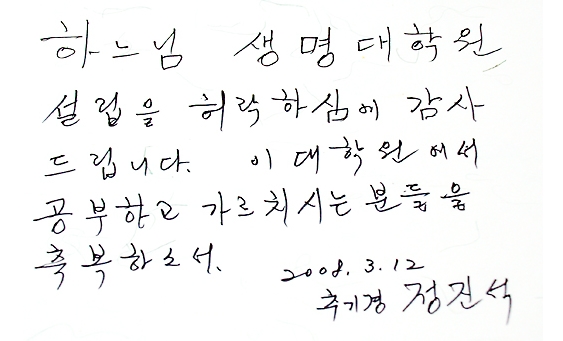 하느님 생명대학원
설립을 허락하심에 감사
드립니다. 이 대학원에서
공부하고 가르치시는 분들을
축복하소서.
2008. 3. 12
추기경 정진석